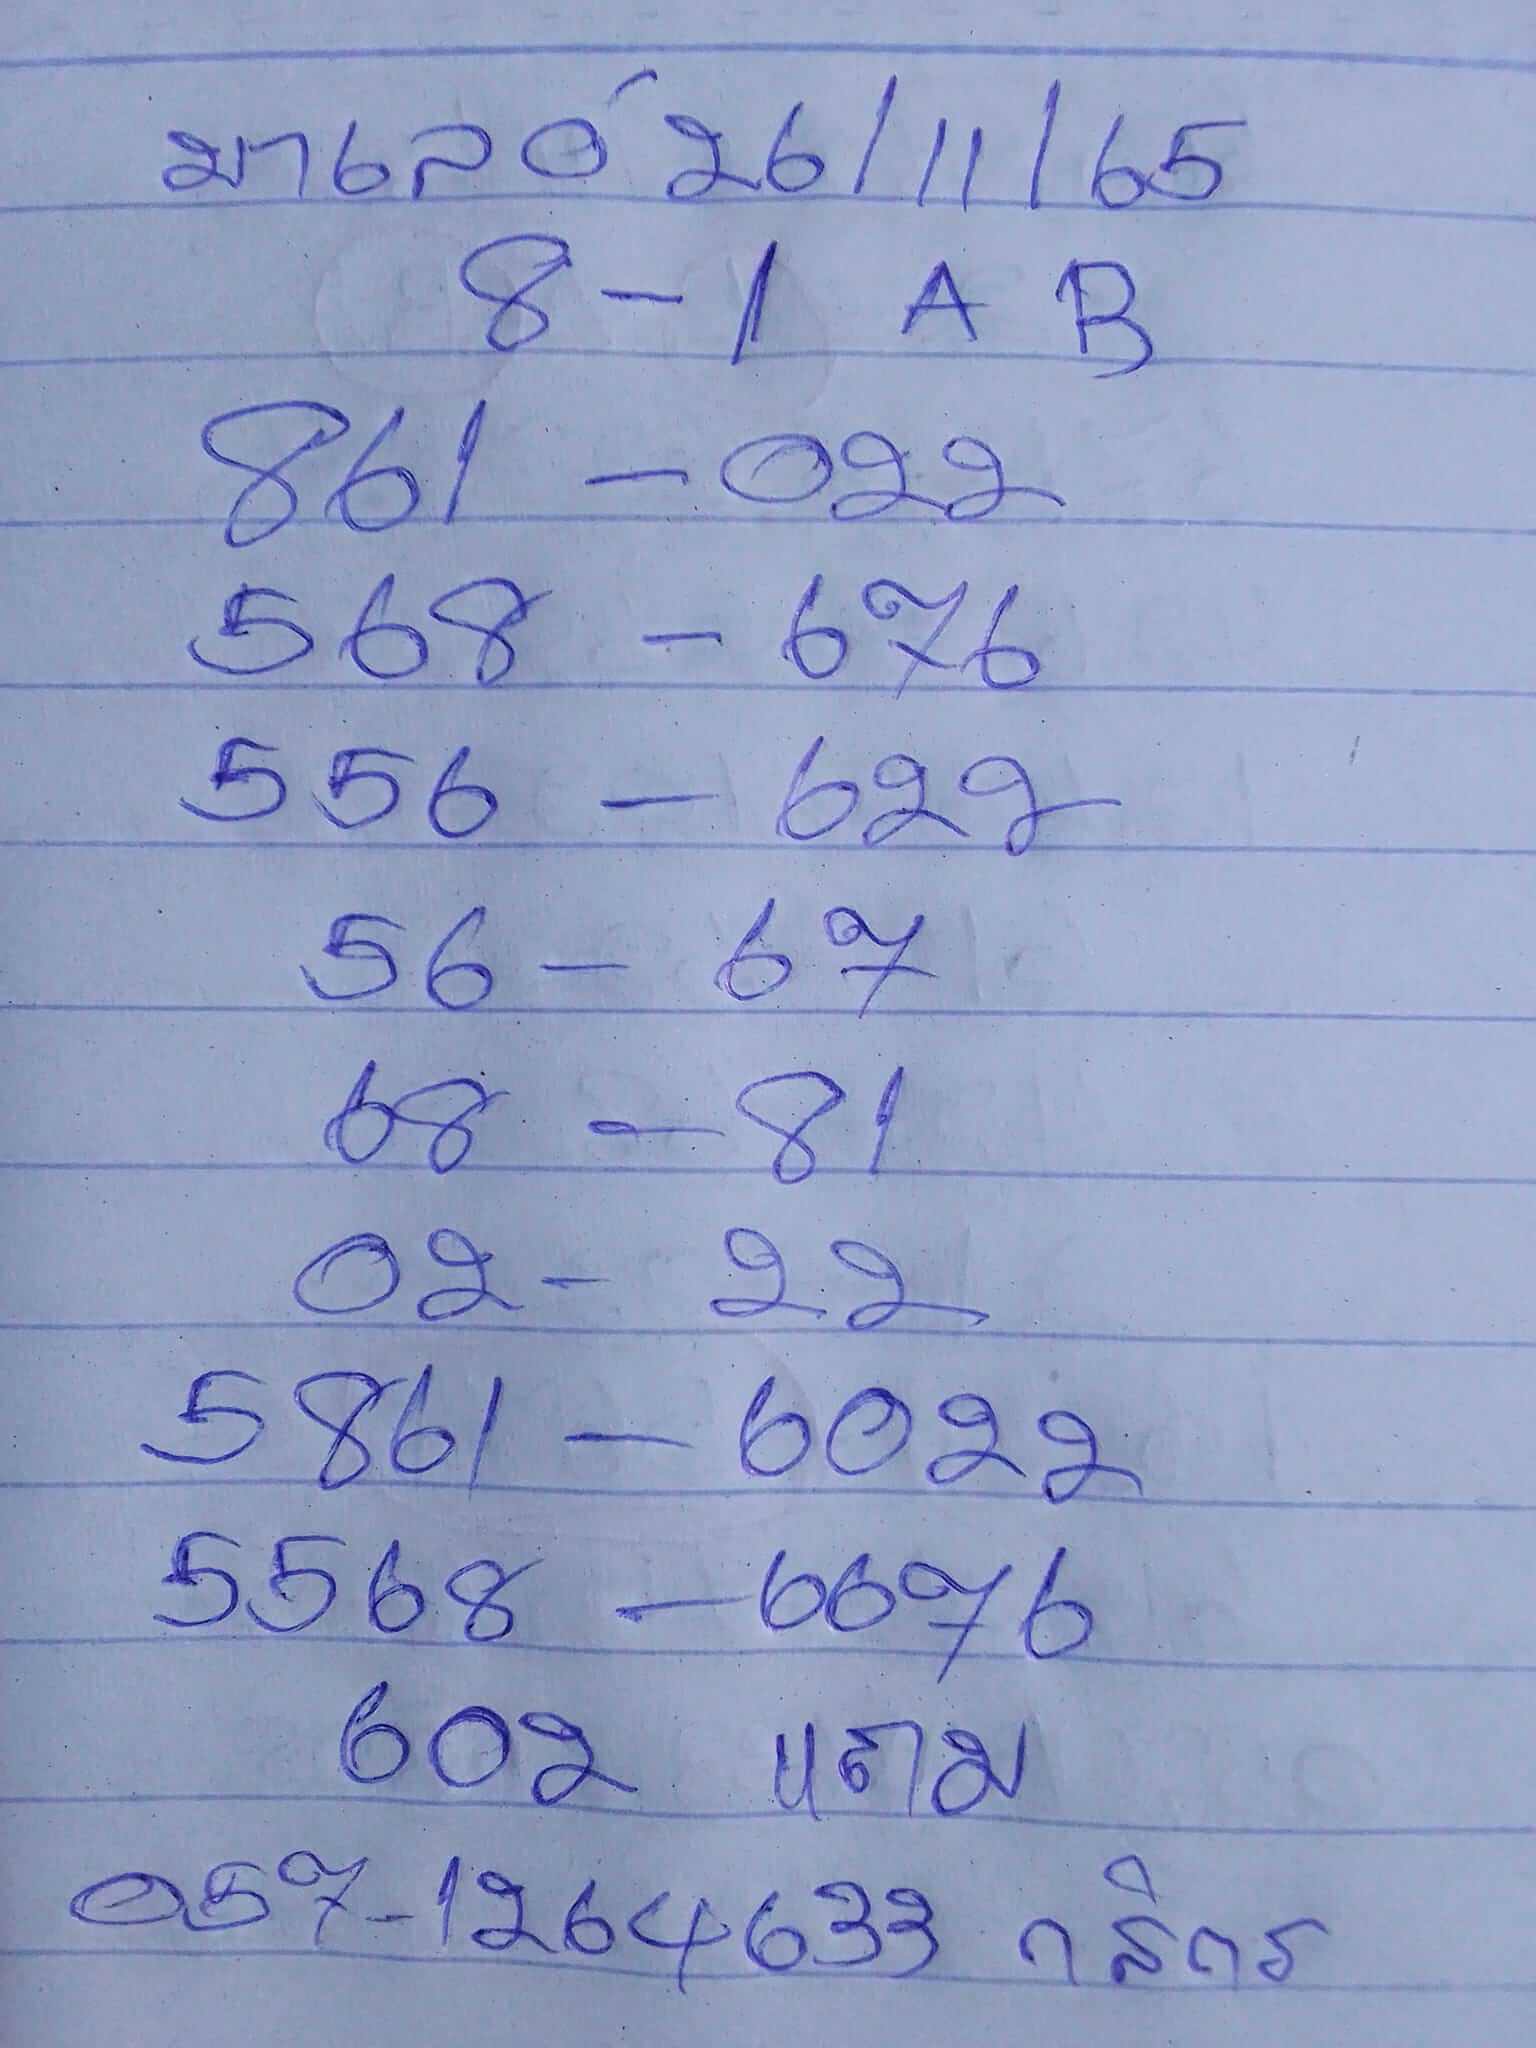 มาเลย์ 26/11/65
8-1 A B
861-022
568-676
556-622
56-67
68-81
02-22
5861-6022
5568-6676
602 แถม
057-1264633 กสิกร